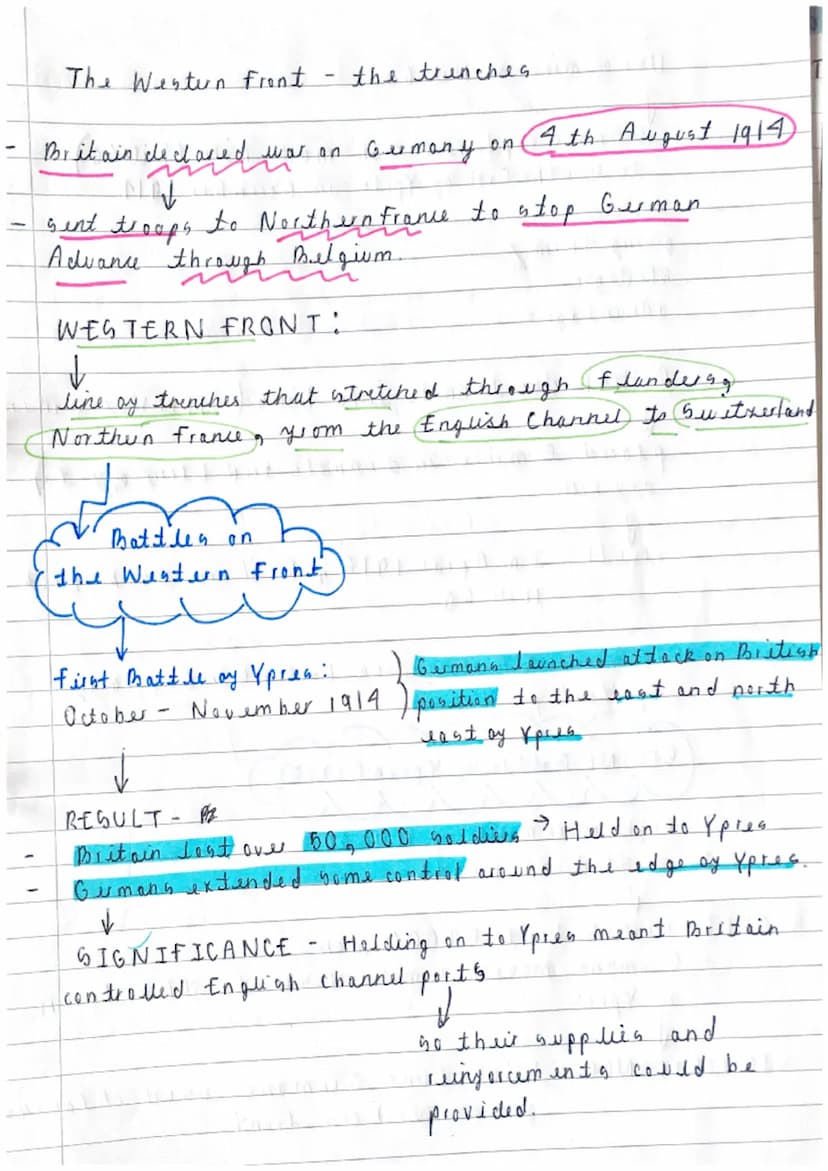 The Western Front - the trenches
- Britain declared war on Germany on 4th August 1914
↓
- sent troops to Northern France to stop German
Advance through Belgium.
WESTERN FRONT:
↓
line of trenches that stretched through Flanders,
Northern France, from the English Channel to Switzerland
Battles on
the Western Front
↓
First Battle of Ypres:
October - November 1914
Germans launched attack on British
position to the east and north
east of Ypres
↓
RESULT -
- Britain lost over 50,000 soldiers → Held on to Ypres
- Germans extended some control around the edge of Ypres.
↓
SIGNIFICANCE - Holding on to Ypres meant Britain
controlled English Channel ports
↓
so their supplies and
reinforcements could be
provided.